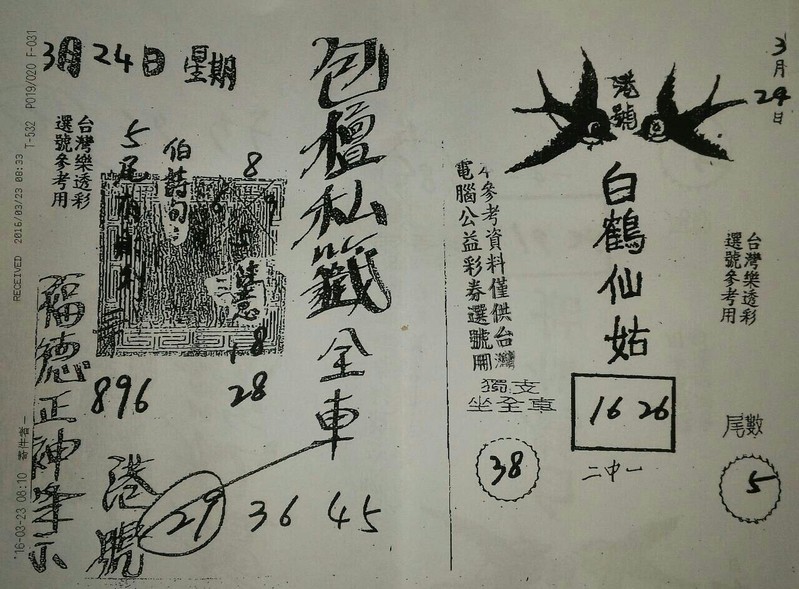 RECEIVED 2016/03/23 08:33 T-532 P019/020 F-031
'16-03-23 08:10
3月24日 星期
台灣樂透彩
選號參考用
伯詩句
8
18
896 28
福德正神
港號
包檀私籤全車
29 36 45
3月24日
港號
白鶴仙姑
本參考資料僅供台灣
電腦公益彩券選號用
台灣樂透彩
選號參考用
獨支
坐全車
38
16 26
二中一
尾數
5